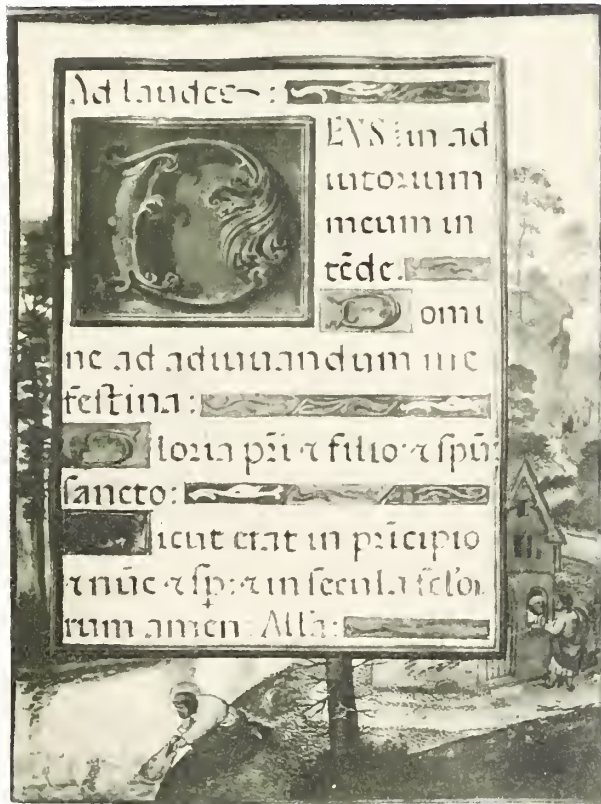 Ad laudes :
DEVS in ad
iutorium
meum in
tēde.
Domi
ne ad adiuuandum me
festina :
Gloria pr̄i ⁊ filio ⁊ spūi
sancto:
Sicut erat in prīcipio
⁊ nūc ⁊ sp̄: ⁊ in secula sc̄lo
rum amen. All'a: